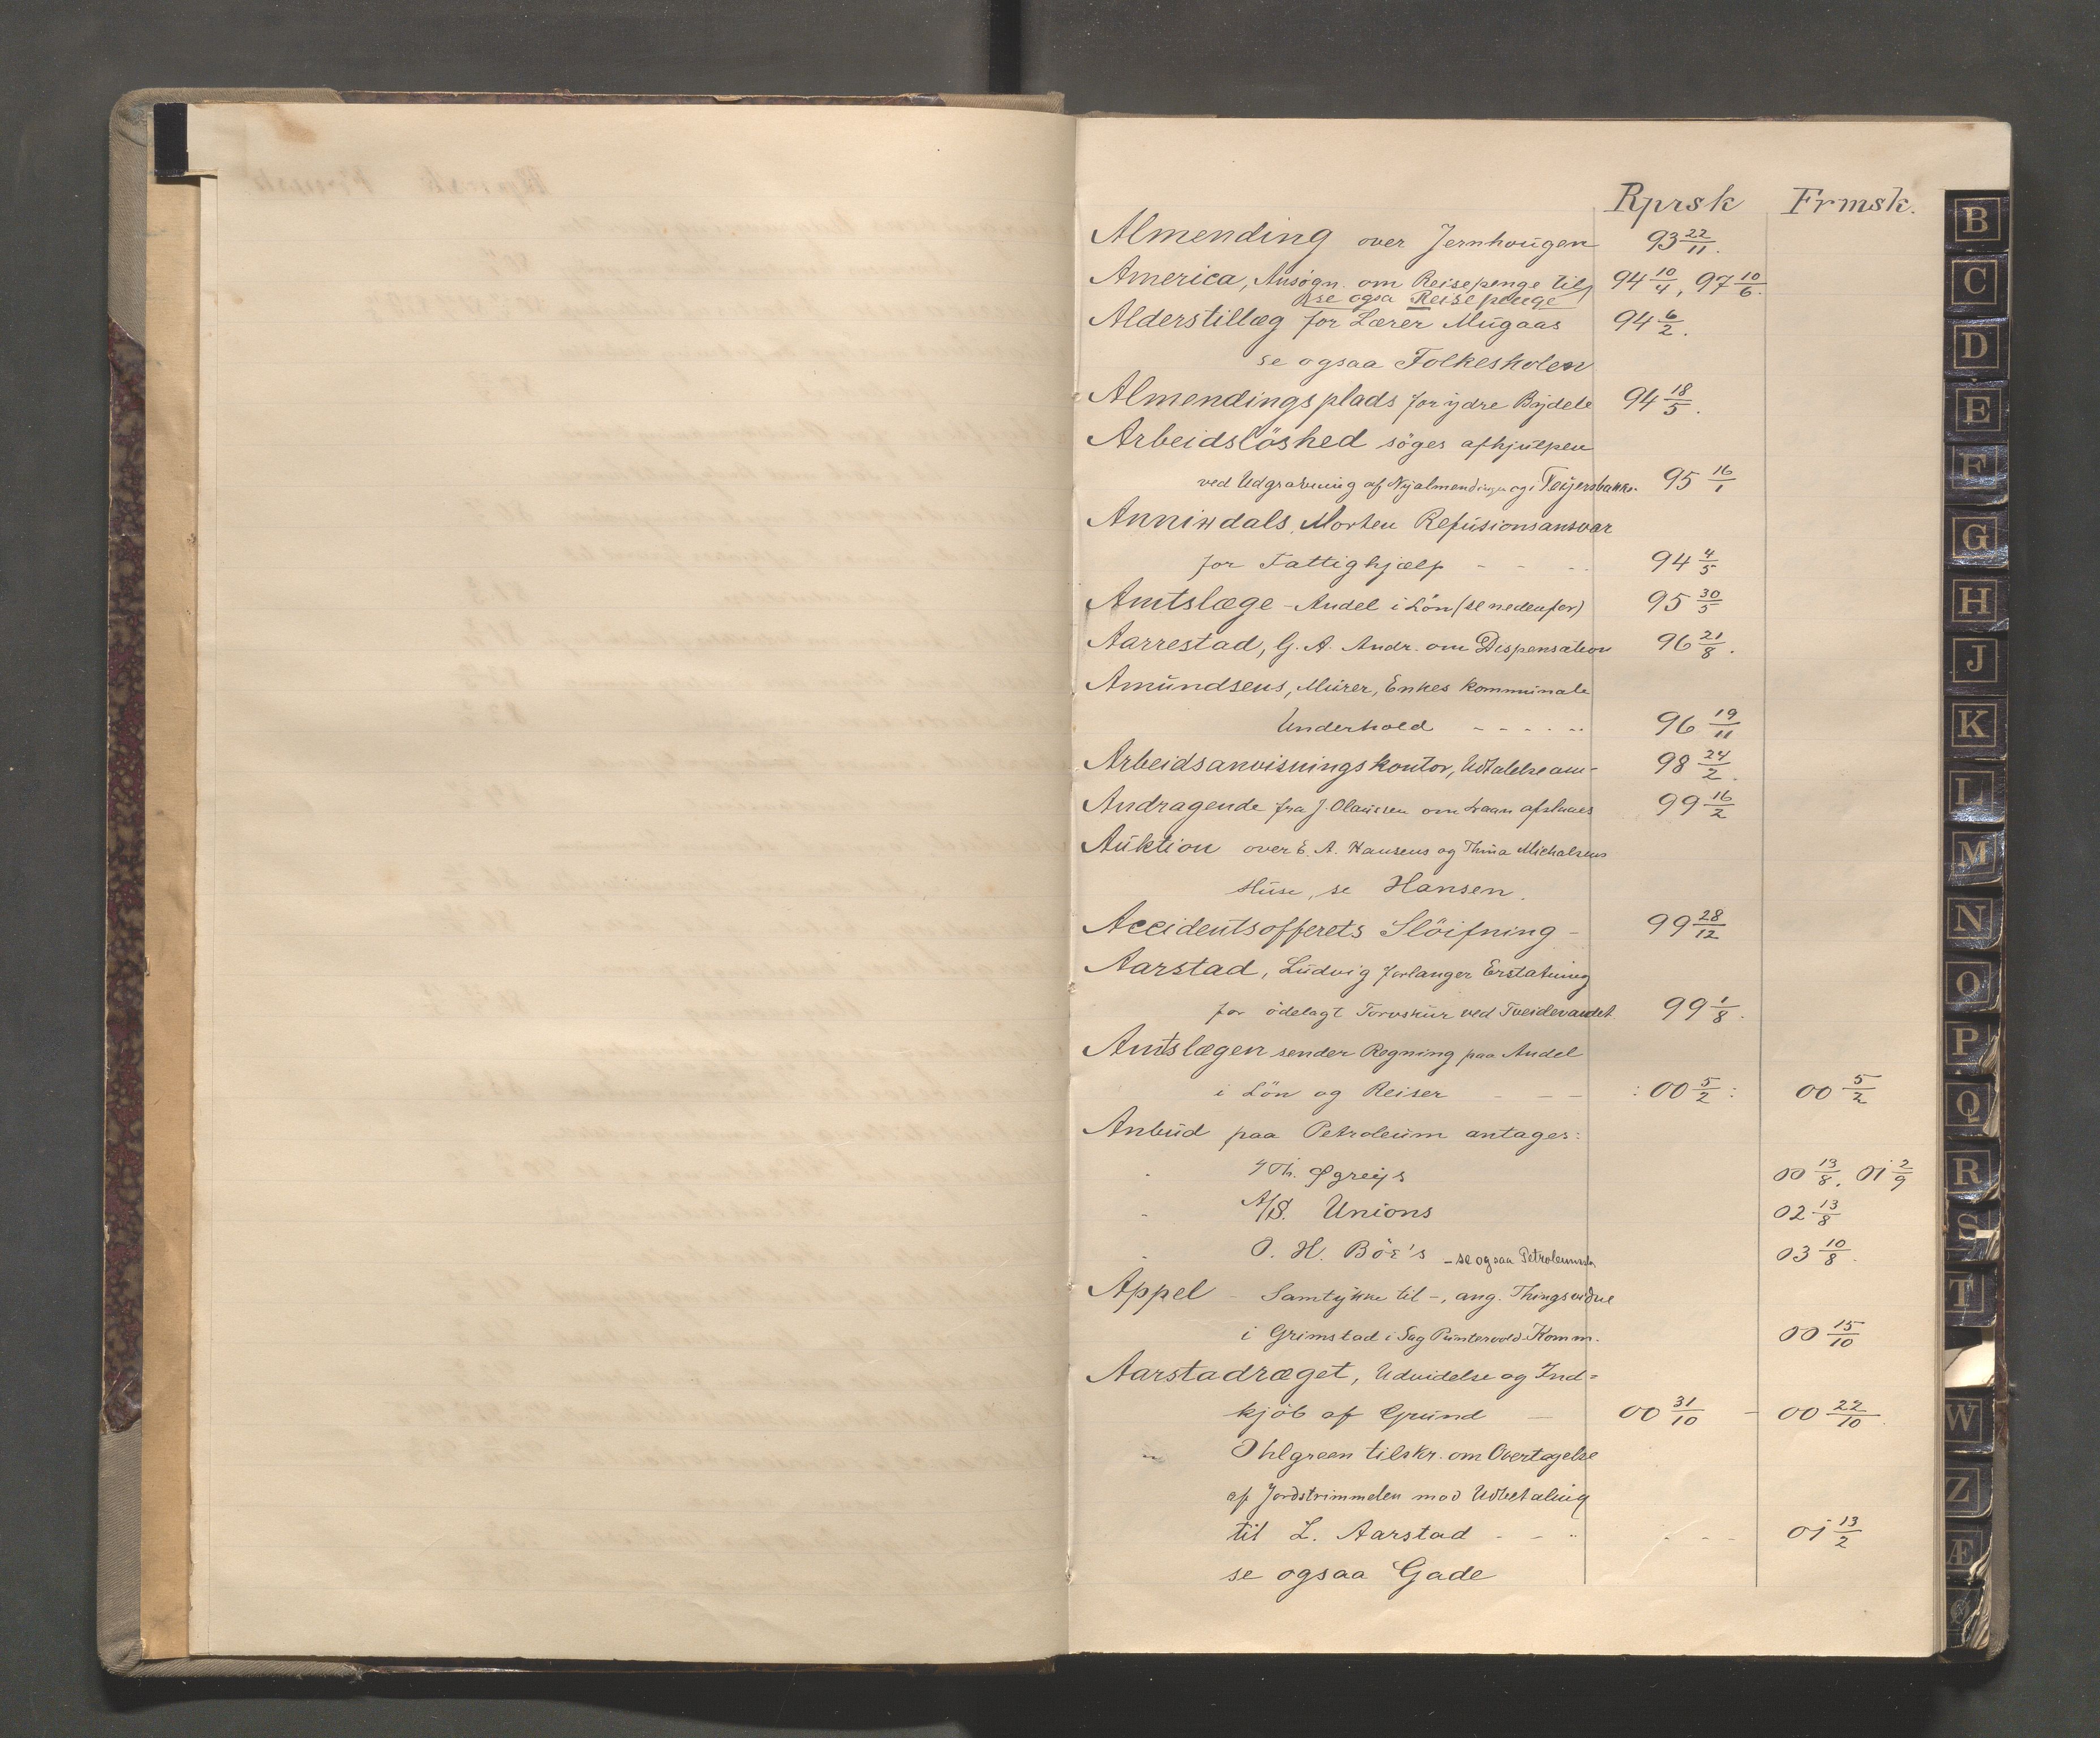 Rprsk Frmsk.
Almending over Jernhougen 93 22/11.
America, Ansögn. om Reisepenge til 94 10/4, 97 10/6.
se ogsa Reisepenge
Alderstillæg for Lærer Mugaas 94 6/2.
se ogsaa Folkeskolen
Almendingsplads for ydre Bydele 94 18/5.
Arbeidslöshed söges afhjulpen
ved Udgravning af Nyalmendingen og i Feijersbakke. 95 16/1
Annindals, Morten Refusionsansvar
for Fattighjælp - - - 94 4/5
Amtslæge - Andel i Lön (se nedenfor) 95 30/5
Aarrestad, G. A. Andr. om Dispensation 96 21/8.
Amundsens, Murer, Enkes kommunale
Underhold - - - - - 96 19/11
Arbeidsanvisningskontor, Udtalelse om - 98 24/2.
Andragende fra J. Olaussen om Laan afslaaes 99 16/2
Auktion over E. A. Hansens og Thina Michalsens
Huse, se Hansen.
Accidentsofferets Slöifning - 99 28/12
Aarstad, Ludvig forlanger Erstatning
for ödelagt Torvskur ved Tveidevandet 99 1/8.
Amtslægen sender Regning paa Andel
i Lön og Reiser - - - : 00 5/2 : 00 5/2
Anbud paa Petroleum antages:
- Th. Øgreijs 00 13/8, 01 2/9
- A/S. Unions 02 13/8
- O. H. Böe's - se ogsaa Petroleumsk. 03 10/8.
Appel - Samtykke til -, ang. Thingsvidne
i Grimstad i Sag Puntervold-Komm. 00 15/10
Aarstadræget, Udvidelse og Ind=
kjöb af Grund - 00 31/10 - 00 22/10.
" Ohlgreen tilskr. om Overtagelse
af Jordstrimmelen mod Udbetaling
til L. Aarstad - - - - - - 01 13/2
se ogsaa Gade
B
C
D
E
F
G
H
J
K
L
M
N
O
P
Q
R
S
T
W
Z
Æ
Ø